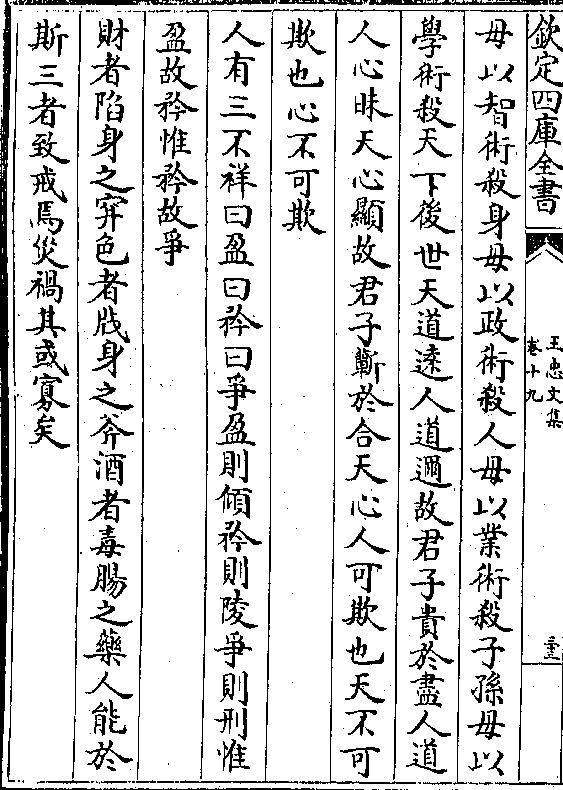 欽定四庫全書
王忠文集
卷十九
三
毋以智術殺身毋以政術殺人毋以業術殺子孫毋以
學術殺天下後世天道逺人道邇故君子貴於盡人道
人心昧天心顯故君子蘄於合天心人可欺也天不可
欺也心不可欺
人有三不祥曰盈曰矜曰爭盈則傾矜則陵爭則刑惟
盈故矜惟矜故爭
財者陷身之穽色者戕身之斧酒者毒腸之藥人能於
斯三者致戒焉災禍其或寡矣